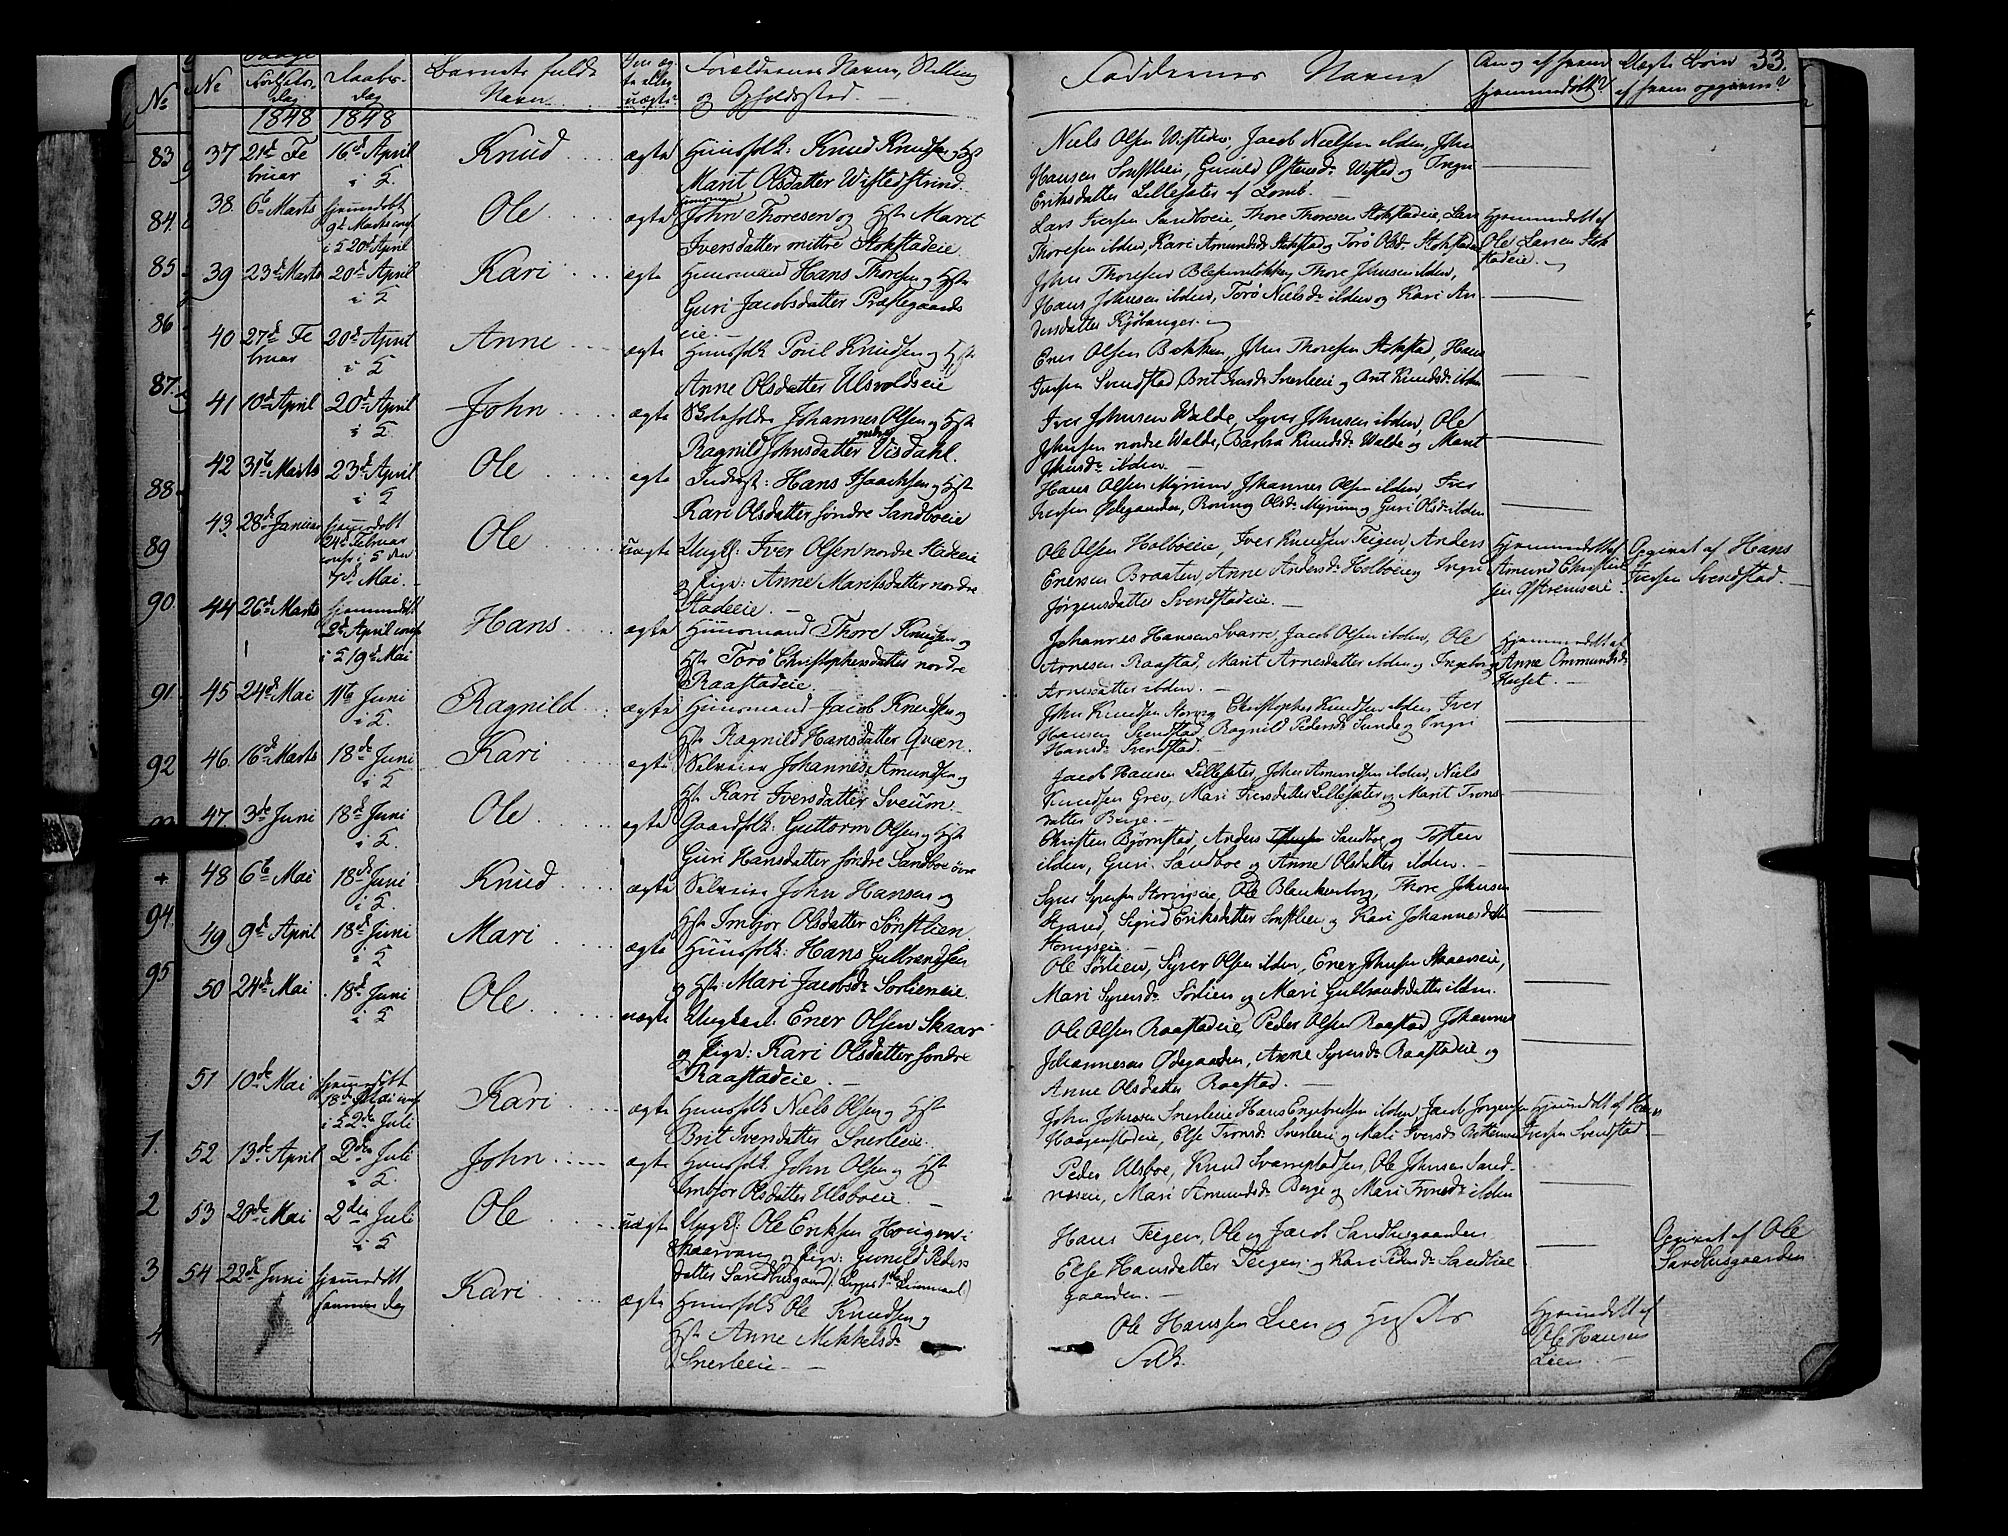 No
No
Fødsels-
dag
Daabs-
dag
Barnets fulde
Navn
Om æg-
te eller
uægte
Forældrenes Navne, Stilling
og Opholdssted.
Faddernes Navne
Om og af hvem
hjemmedøbt
Uægte Børn
af hvem opgivne
33.
1848 1848
83 37 21de Fe
bruar
16de April
i K.
Knud
ægte
Huusfolk: Knud Knudsen og Hst
Marit Olsdatter Wistedstrind.
Niels Olsen Wisteder, Jacob Nielsen ibden, John
Hansen Sonstlien, Gunild Ostensd: Wisted og Ingri
Eriksdatter Lillesæter af Lomb.
84 38. 6te Marts
hjemmedøbt
9de Marts conf
i K 20de April
Ole
ægte
John Thoresen og Hst Marit
Iversdatter mittre Stokstadeie
Lars Iversen Sandboeie, Thore Thoresen Stokstadeie, Lars
Thoresen ibden, Kari Amundsd: Stokstad og Torø Olsd: Stokstad
Hjemmedøbt af
Ole Larsen Stok
stadeie.
85 39 23de Marts 20de April
i K
Kari
ægte
Huusmand Hans Thoresen og Hst
Guri Jacobsdatter Præstegaards
eie.
John Thoresen Blessumlokken, Thore Johnsen ibden,
Hans Johnsen ibden, Torø Nielsd: ibden og Kari An-
dersdatter Kjøbanger.
86 40 27de Fe
bruar
20de April
i K
Anne
ægte
Huusfolk Poul Knudsen og Hst
Anne Olsdatter Ulsvoldseie
Ener Olsen Bakken, John Thoresen Stokstad, Hans
Iversen Svendstad, Brit Iversd: Snerleeie og Brit Knudsd: ibden
87 41 10de April 20de April
i K.
John
ægte
Skoleholder Johannes Olsen og Hst
Ragnild Johnsdatter nedre Visdahl.
Iver Johnsen Walde, Syver Johnsen ibden, Ole
Johnsen nordre Walde, Barbra Knudsd: Walde og Marit
Johnsd: ibden.
88 42 31te Marts 23de April
i K
Ole
ægte
Inderst: Hans Isaachsen og Hst
Kari Olsdatter søndre Sandboeie
Hans Olsen Myrum, Johannes Olsen ibden, Iver
Iversen Ødegaarden, Ronnog Olsd: Myrum og Guri Olsd: ibden
89 43. 28de Januar
hjemmedøbt
24de Februar
conf. i K den
7de Mai.
Ole
uægte
Ungk: Iver Olsen nordre Stadeeie
og Pige: Anne Mariksdatter nordre
Stadeeie.
Ole Olsen Holboeie, Iver Knudsen Teigen, Anders
Enersen Braaten, Anne Andersd: Holboeie og Ingri
Jørgensdatter Svendstadeie.
Hjemmedøbt af
Amund Christian
sen Ofstremseie.
Opgivet af Hans
Iversen Svendstad.
90. 44 26de Marts
hjemmedøbt
2de April conf
i K 19de Mai
Hans
ægte
Huusmand Thore Knudsen og
Hst Torø Christophersdatter nordre
Raastadeie.
Johannes Hansen Svarre, Jacob Olsen ibden, Ole
Arnesen Raastad, Marit Arnesdatter ibden og Ingeborg
Arnesdatter ibden.
Hjemmedøbt af
Anne Ommundsd:
Huset.
91. 45 24de Mai 11te Juni
i K.
Ragnild
ægte
Huusmand Jacob Knudsen og
Hst Ragnild Hansdatter Qvæn.
John Knudsen Storvig, Christopher Knudsen ibden, Iver
Hansen Svendstad, Ragnild Pedersd: Sunde og Ingri
Hansd: Svendstad.
92 46. 16de Marts 18de Juni
i K
Kari
ægte
Selveier Johannes Amundsen og
Hst Kari Iversdatter Sveum.
Jacob Hansen Lillesæter, John Amundsen ibden, Niels
Knudsen Grev, Mari Iversdatter Lillesæter og Marit Trons-
datter Berge.
47. 3de Juni 18de Juni
i K.
Ole
ægte
Gaardfolk: Guttorm Olsen og Hst
Guri Hansdatter søndre Sandboe øvre
Christen Bjørnstad, Anders Sandbo og Tosten
ibden, Guri Sandboe og Anne Olsdatter ibden.
+ 48 6te Mai 18de Juni
i K.
Knud
ægte
Selveier John Hansen og
Hst Imbjor Olsdatter Sønstlien
Syver Syversen Storvigseie, Ole Blankenborg, Thore Johnsen
Stjand, Sigrid Eriksdatter Sonstlien og Kari Johannesdatter
Storvigseie.
94 49 9de April 18de Juni
i K
Mari
ægte
Huusfolk: Hans Gulbrandsen
og Hst: Mari Jacobsd: Sorlieneie.
Ole Sørlien, Syver Olsen ibden, Ener Johnsen Skaareeie,
Mari Syversd: Sørlien og Mari Gulbrandsdatter ibden.
95 50 24de Mai 18de Juni
i K
Ole
uægte
Ungkarl: Ener Olsen Skaar
og Pige: Kari Olsdatter søndre
Raastadeie.
Ole Olsen Raastadeie, Peder Olsen Raastad, Johannes
Johannesen Ødegaarden, Anne Syversd: Raastadeie og
Anne Olsdatter Raastad.
51 10de Mai
hjemmedøbt
18de Mai conf
i K 2den Juli
Kari
ægte
Huusfolk Niels Olsen og Hst
Brit Iversdatter Snerleeie.
John Johnsen Snerleeie, Hans Engebretsen ibden, Jacob Jørgensen
Haagenstadeie, Else Tronsd: Snerleeie og Mari Iversd: Bottemoen
Hjemmedøbt af Hans
Iversen Svendstad.
1. 52 13de April 2den Juli
i K.
John
ægte
Huusfolk. John Olsen og Hst
Imbjor Olsdatter Ulsboeie.
Peder Ulsboe, Knud Svarepladsen, Ole Johnsen Sand-
næseie, Mari Amundsd: Berge og Mari Tronsd: ibden
2 53 20de Mai 2den Juli
i K
Ole
uægte
Ungk: Ole Eriksen Hougen i
Skaarvang og Pige: Gunild Peders
datter Sandbusgaard (Begges 1ste Leiermaal)
Hans Teigen, Ole og Jacob Sandbusgaarden
Else Hansdatter Teigen og Kari Pedersd: Sandbue
gaarden.
Opgivet af Ole
Sandbusgaarden.
3 54 22de Juni
hjemmedøbt
sammen Dag
Kari
ægte
Huusfolk Ole Knudsen og
Hst Anne Mikkelsd:
Snerleeie
Ole Hansen Lien og
Hjemmedøbt af
Ole Hansen
Lien.
4